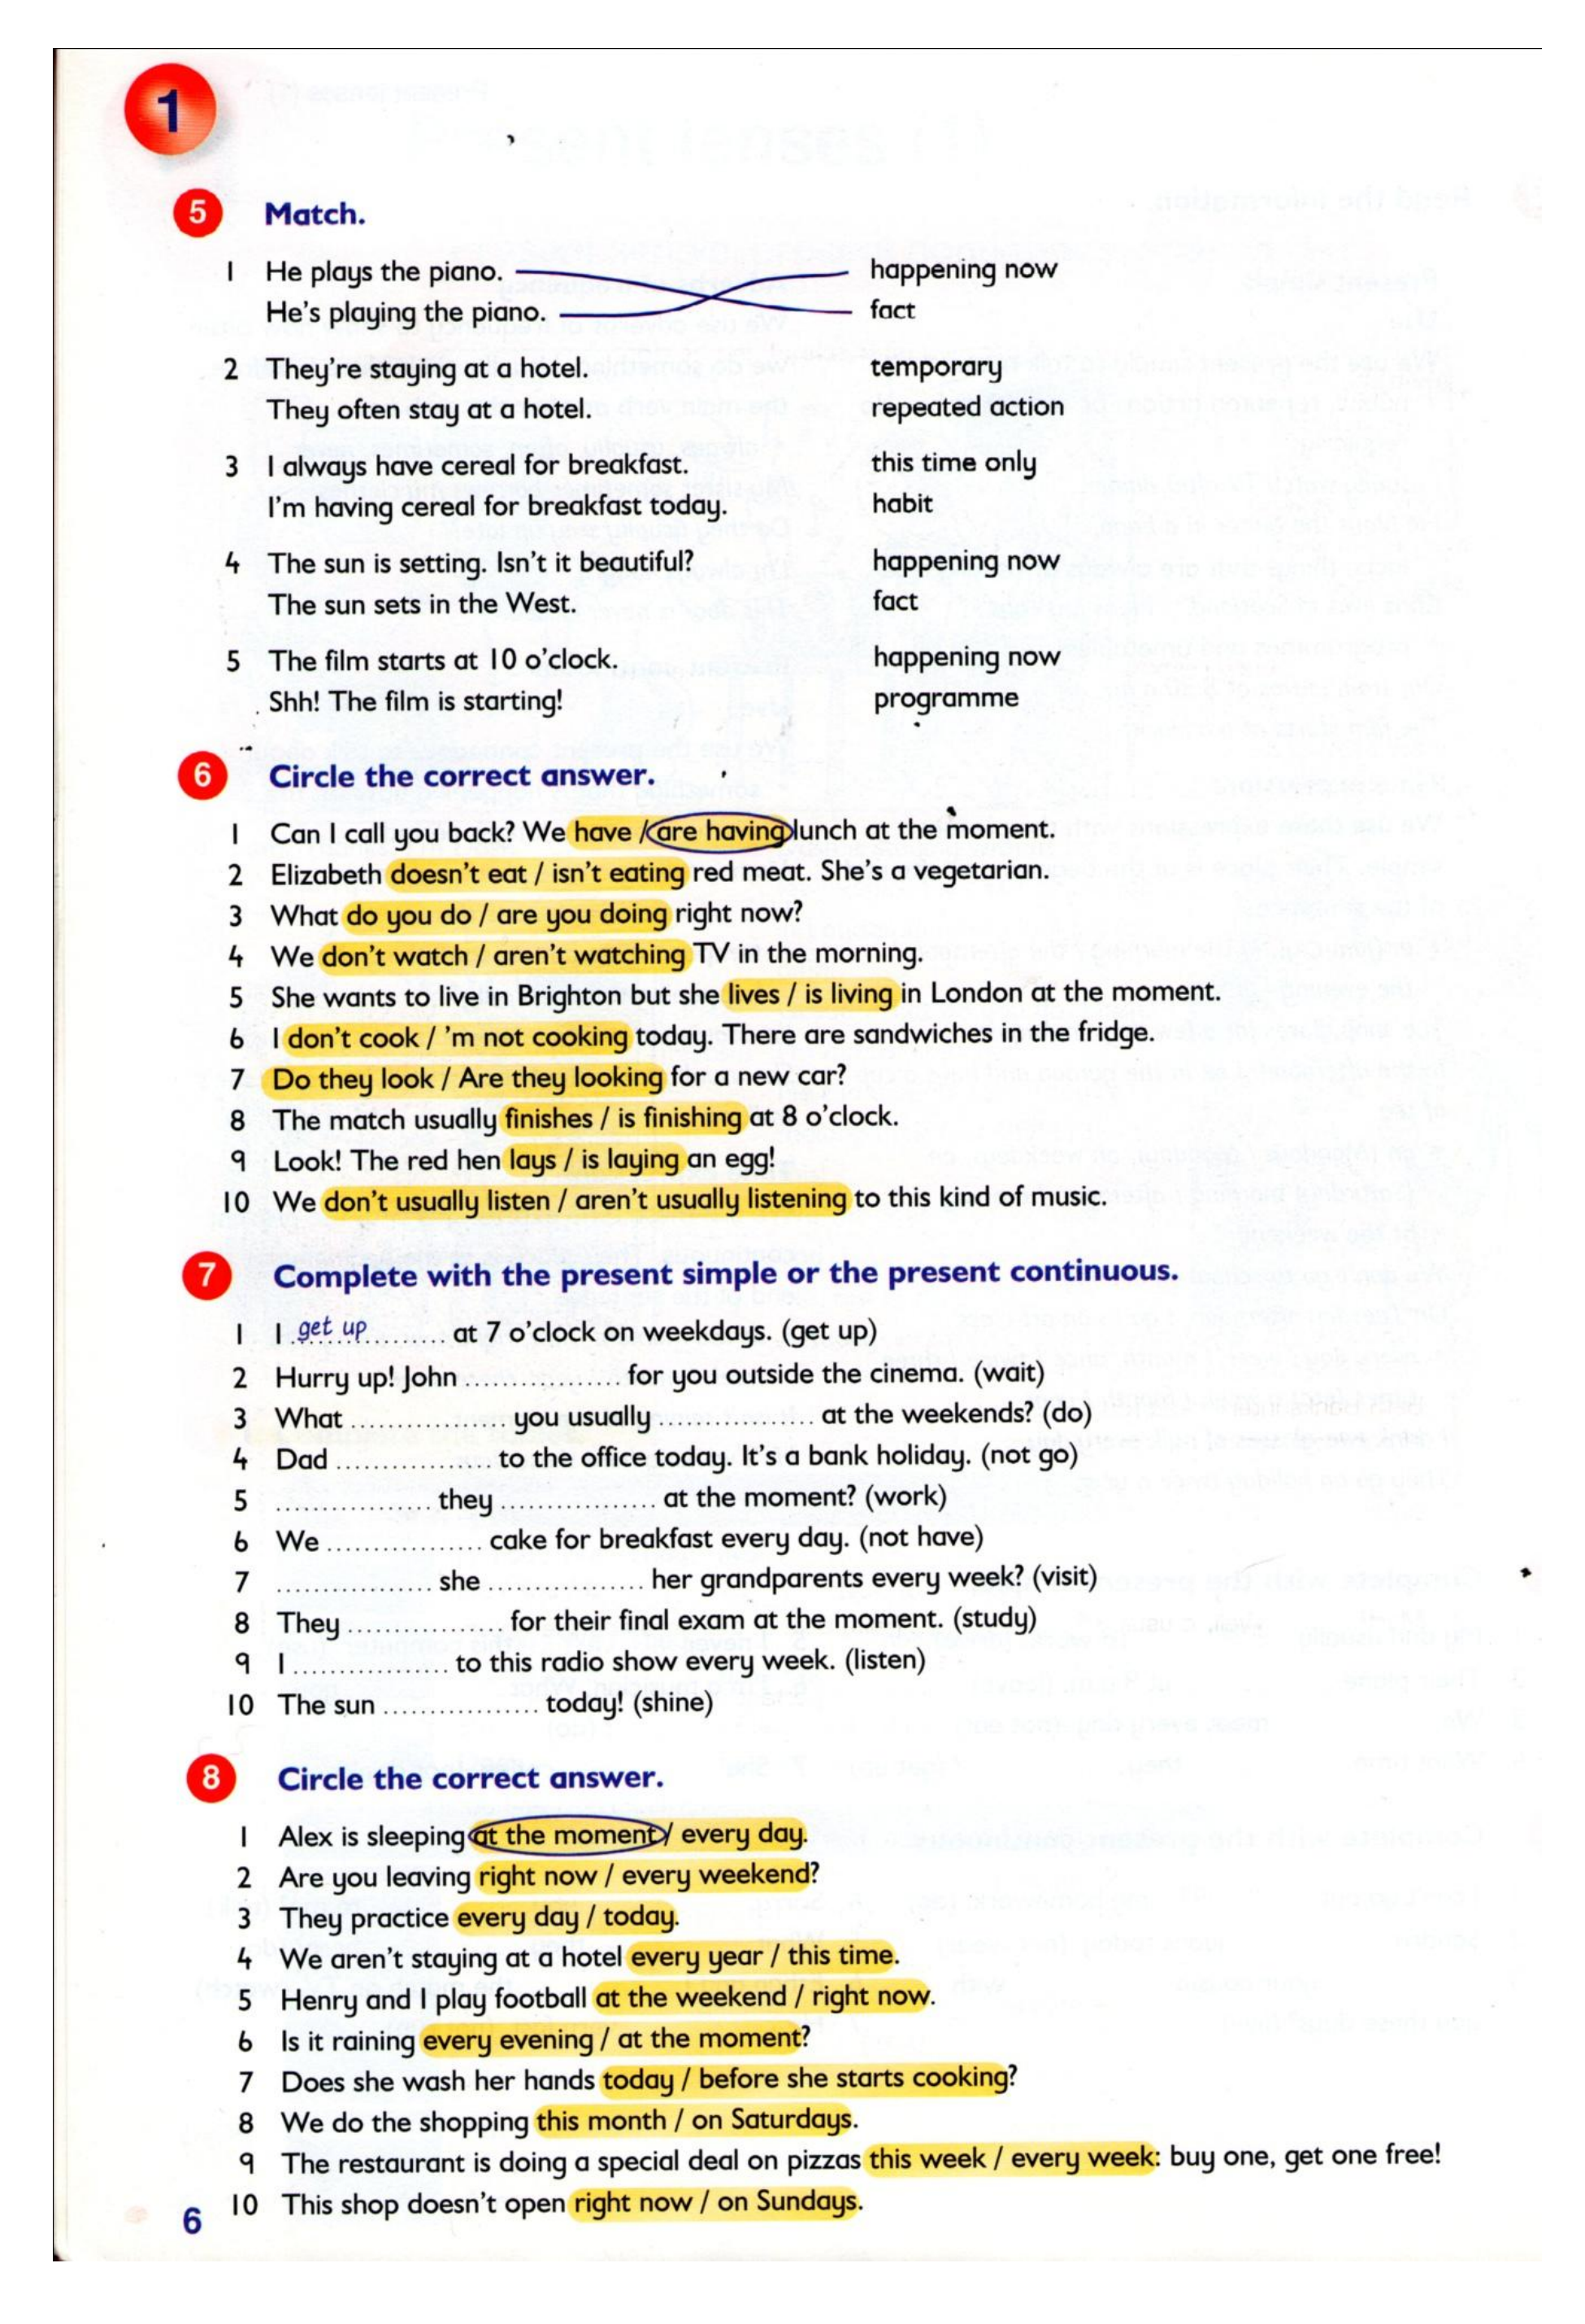 1
5 Match.
1 He plays the piano. happening now
He's playing the piano. fact
2 They're staying at a hotel. temporary
They often stay at a hotel. repeated action
3 I always have cereal for breakfast. this time only
I'm having cereal for breakfast today. habit
4 The sun is setting. Isn't it beautiful? happening now
The sun sets in the West. fact
5 The film starts at 10 o'clock. happening now
Shh! The film is starting! programme
6 Circle the correct answer.
1 Can I call you back? We have / are having lunch at the moment.
2 Elizabeth doesn't eat / isn't eating red meat. She's a vegetarian.
3 What do you do / are you doing right now?
4 We don't watch / aren't watching TV in the morning.
5 She wants to live in Brighton but she lives / is living in London at the moment.
6 I don't cook / 'm not cooking today. There are sandwiches in the fridge.
7 Do they look / Are they looking for a new car?
8 The match usually finishes / is finishing at 8 o'clock.
9 Look! The red hen lays / is laying an egg!
10 We don't usually listen / aren't usually listening to this kind of music.
7 Complete with the present simple or the present continuous.
1 I get up at 7 o'clock on weekdays. (get up)
2 Hurry up! John ................ for you outside the cinema. (wait)
3 What ................ you usually ................ at the weekends? (do)
4 Dad ................ to the office today. It's a bank holiday. (not go)
5 ................ they ................ at the moment? (work)
6 We ................ cake for breakfast every day. (not have)
7 ................ she ................ her grandparents every week? (visit)
8 They ................ for their final exam at the moment. (study)
9 I ................ to this radio show every week. (listen)
10 The sun ................ today! (shine)
8 Circle the correct answer.
1 Alex is sleeping at the moment / every day.
2 Are you leaving right now / every weekend?
3 They practice every day / today.
4 We aren't staying at a hotel every year / this time.
5 Henry and I play football at the weekend / right now.
6 Is it raining every evening / at the moment?
7 Does she wash her hands today / before she starts cooking?
8 We do the shopping this month / on Saturdays.
9 The restaurant is doing a special deal on pizzas this week / every week: buy one, get one free!
10 This shop doesn't open right now / on Sundays.
6